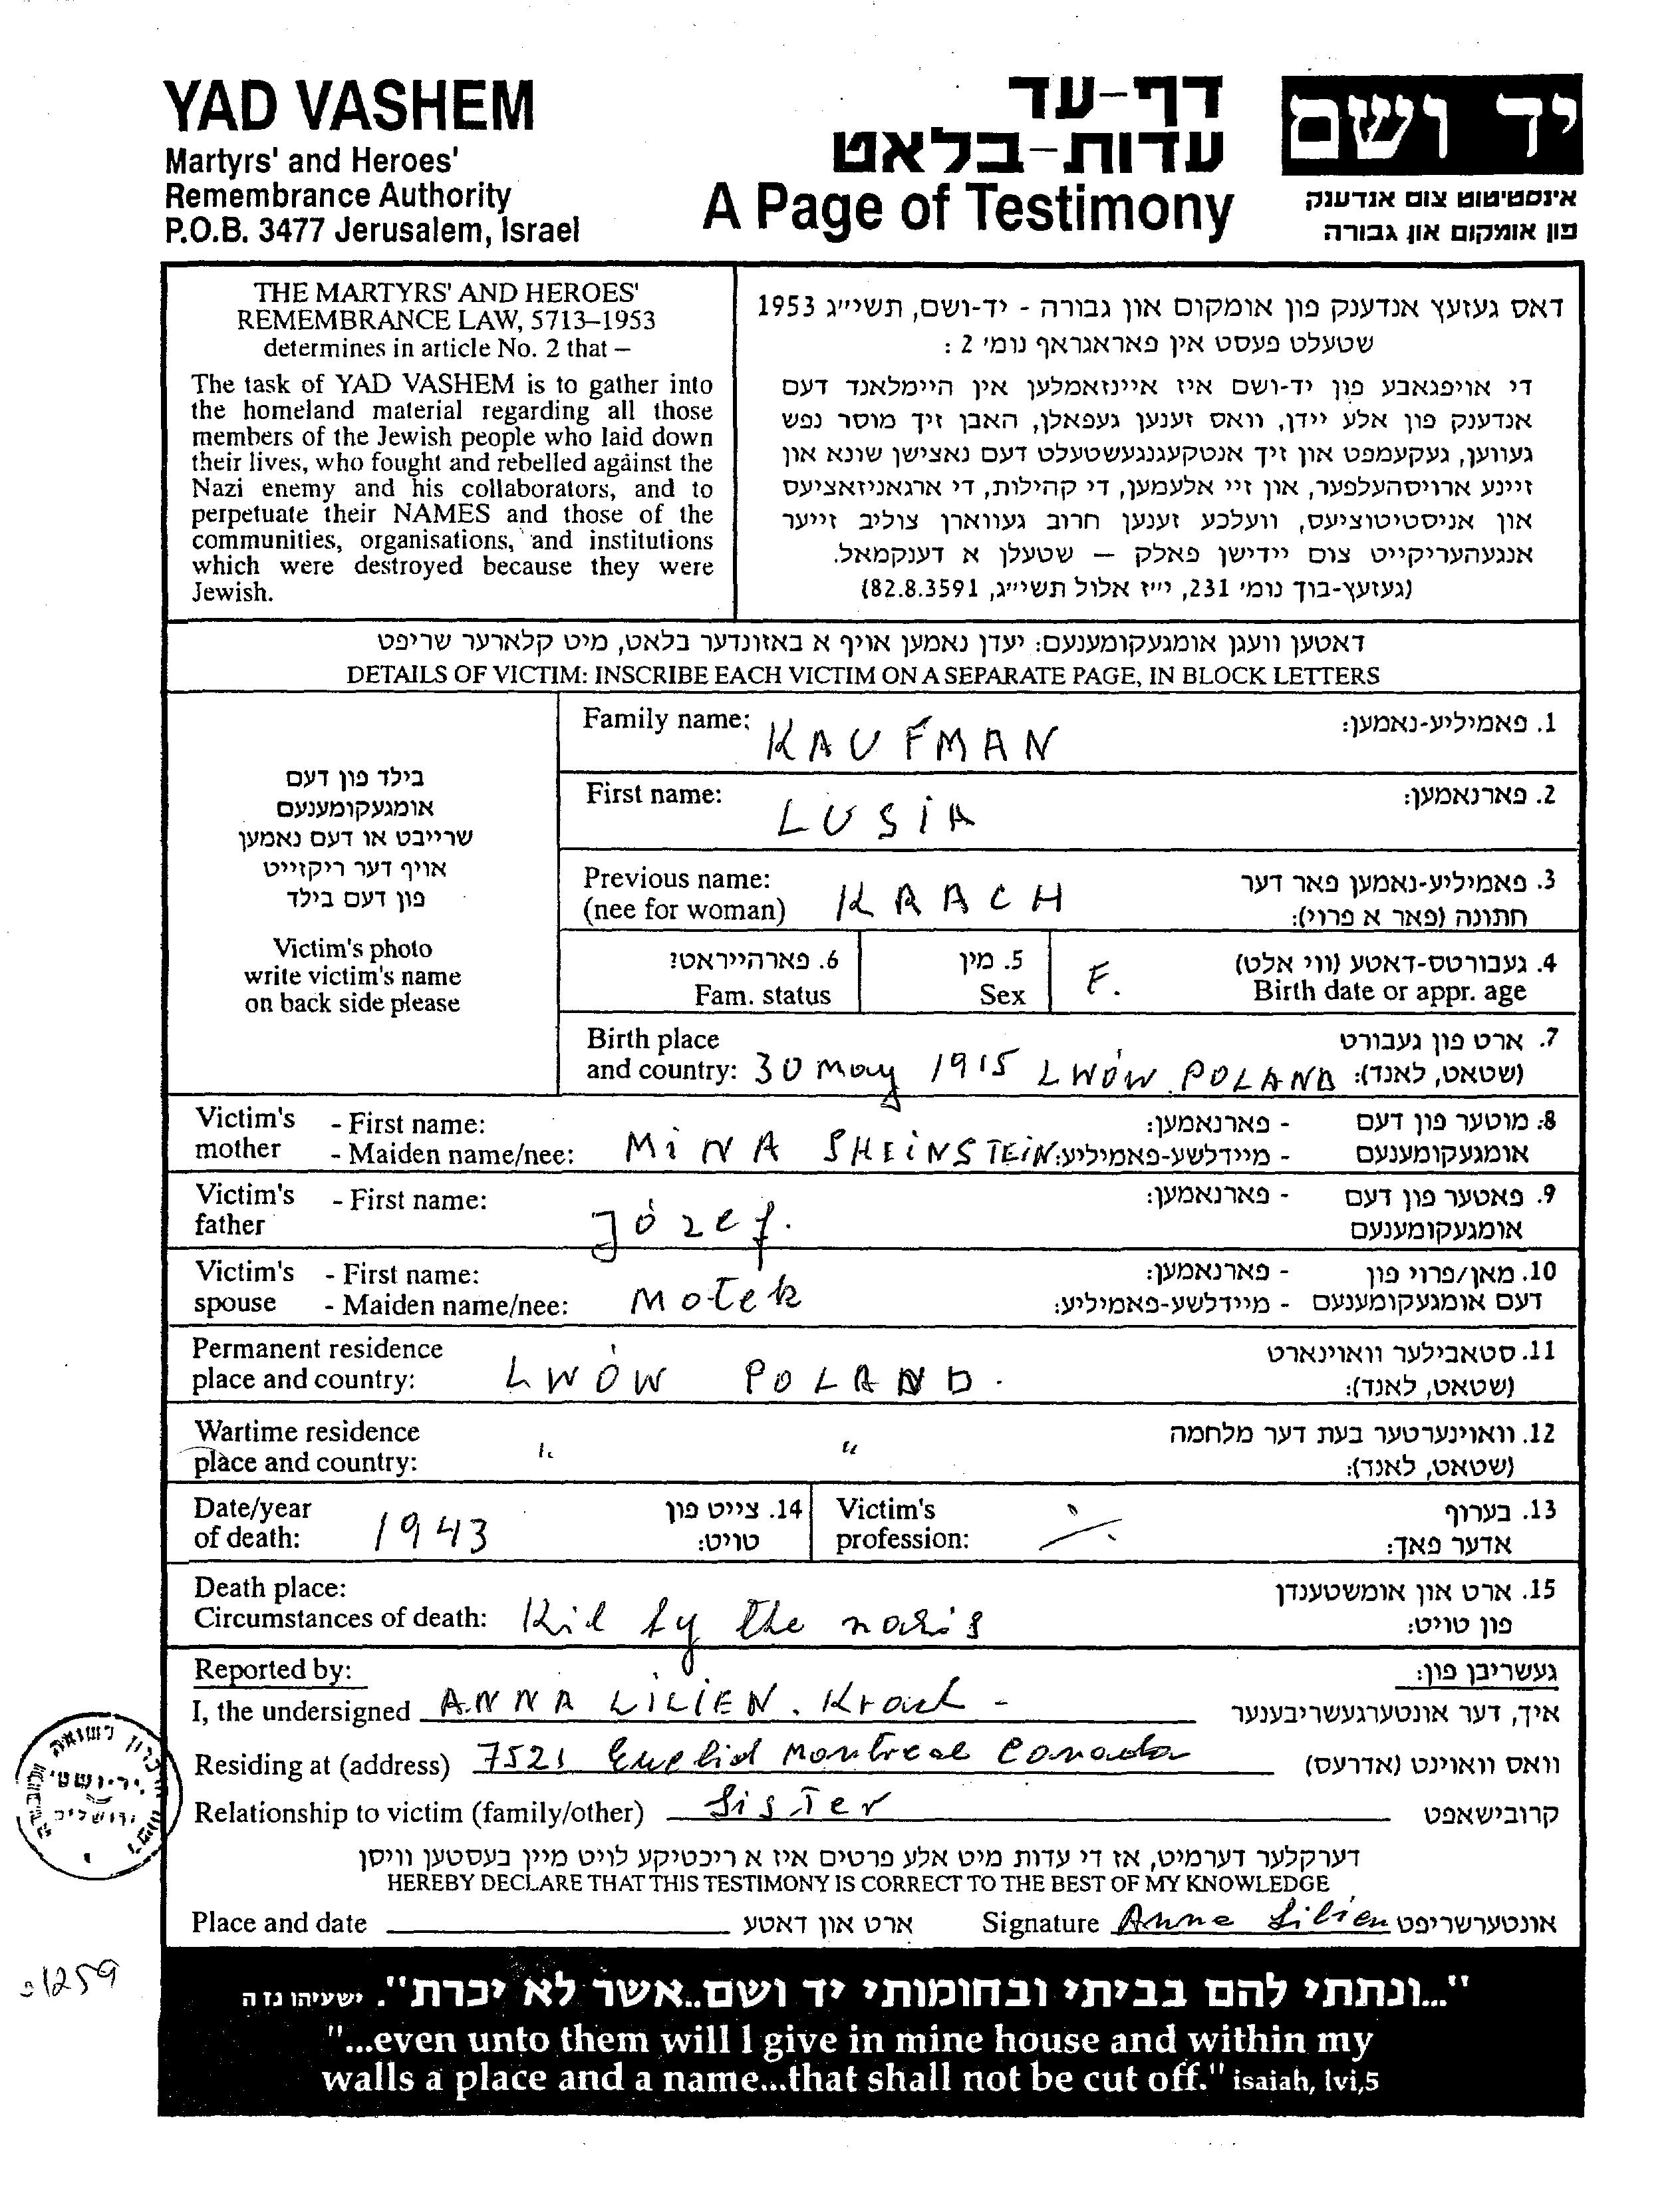 YAD VASHEM
Martyrs' and Heroes'
Remembrance Authority
P.O.B. 3477 Jerusalem, Israel
דף-עד
עדות-בלאט
A Page of Testimony
יד ושם
אינסטיטוט צום אנדענק
פון אומקום און גבורה
THE MARTYRS' AND HEROES'
REMEMBRANCE LAW, 5713–1953
determines in article No. 2 that –
The task of YAD VASHEM is to gather into
the homeland material regarding all those
members of the Jewish people who laid down
their lives, who fought and rebelled against the
Nazi enemy and his collaborators, and to
perpetuate their NAMES and those of the
communities, organisations, and institutions
which were destroyed because they were
Jewish.
דאס געזעץ אנדענק פון אומקום און גבורה - יד-ושם, תשי״ג 1953
שטעלט פעסט אין פאראגראף נומ׳ 2 :
די אויפגאבע פון יד-ושם איז איינזאמלען אין היימלאנד דעם
אנדענק פון אלע יידן, וואס זענען געפאלן, האבן זיך מוסר נפש
געווען, געקעמפט און זיך אנטקעגנגעשטעלט דעם נאצישן שונא און
זיינע ארויסהעלפער, און זיי אלעמען, די קהילות, די ארגאניזאציעס
און אניסטיטוציעס, וועלכע זענען חרוב געווארן צוליב זייער
אנגעהעריקייט צום יידישן פאלק – שטעלן א דענקמאל.
(געזעץ-בוך נומ׳ 231, י״ז אלול תשי״ג, 82.8.3591)
דאטען וועגן אומגעקומענעם: יעדן נאמען אויף א באזונדער בלאט, מיט קלארער שריפט
DETAILS OF VICTIM: INSCRIBE EACH VICTIM ON A SEPARATE PAGE, IN BLOCK LETTERS
בילד פון דעם
אומגעקומענעם
שרייבט או דעם נאמען
אויף דער ריקזייט
פון דעם בילד
Victim's photo
write victim's name
on back side please
Family name: KAUFMAN 1. פאמיליע-נאמען:
First name: LUSIA 2. פארנאמען:
Previous name: 3. פאמיליע-נאמען פאר דער
(nee for woman) KRACH חתונה (פאר א פרוי):
6. פארהייראט? 5. מין 4. געבורטס-דאטע (ווי אלט)
Fam. status Sex F. Birth date or appr. age
Birth place 7. ארט פון געבורט
and country: 30 may 1915 LWÓW POLAND (שטאט, לאנד):
Victim's - First name: - פארנאמען: 8: מוטער פון דעם
mother - Maiden name/nee: MINA SHEINSTEIN - מיידלשע-פאמיליע: אומגעקומענעם
Victim's - First name: - פארנאמען: 9. פאטער פון דעם
father Józef. אומגעקומענעם
Victim's - First name: - פארנאמען: 10. מאן/פרוי פון
spouse - Maiden name/nee: Motek - מיידלשע-פאמיליע: דעם אומגעקומענעם
Permanent residence 11. סטאבילער וואוינארט
place and country: LWÓW POLAND. (שטאט, לאנד):
Wartime residence 12. וואוינערטער בעת דער מלחמה
place and country: " " (שטאט, לאנד):
Date/year 14. צייט פון Victim's 13. בערוף
of death: 1943 טויט: profession: ⁒ אדער פאך:
Death place: 15. ארט און אומשטענדן
Circumstances of death: Kil by the nazis פון טויט:
Reported by: געשריבן פון:
I, the undersigned ANNA LILIEN. Krach - איך, דער אונטערגעשריבענער
Residing at (address) 7521 Euclid Montreal Canada וואס וואוינט (אדרעס)
Relationship to victim (family/other) Sister קרובישאפט
דערקלער דערמיט, אז די עדות מיט אלע פרטים איז א ריכטיקע לויט מיין בעסטען וויסן
HEREBY DECLARE THAT THIS TESTIMONY IS CORRECT TO THE BEST OF MY KNOWLEDGE
Place and date ארט און דאטע Signature Anna Lilien אונטערשריפט
1259
"...ונתתי להם בביתי ובחומותי יד ושם..אשר לא יכרת". ישעיהו נו ה
"...even unto them will I give in mine house and within my
walls a place and a name...that shall not be cut off." isaiah, lvi,5